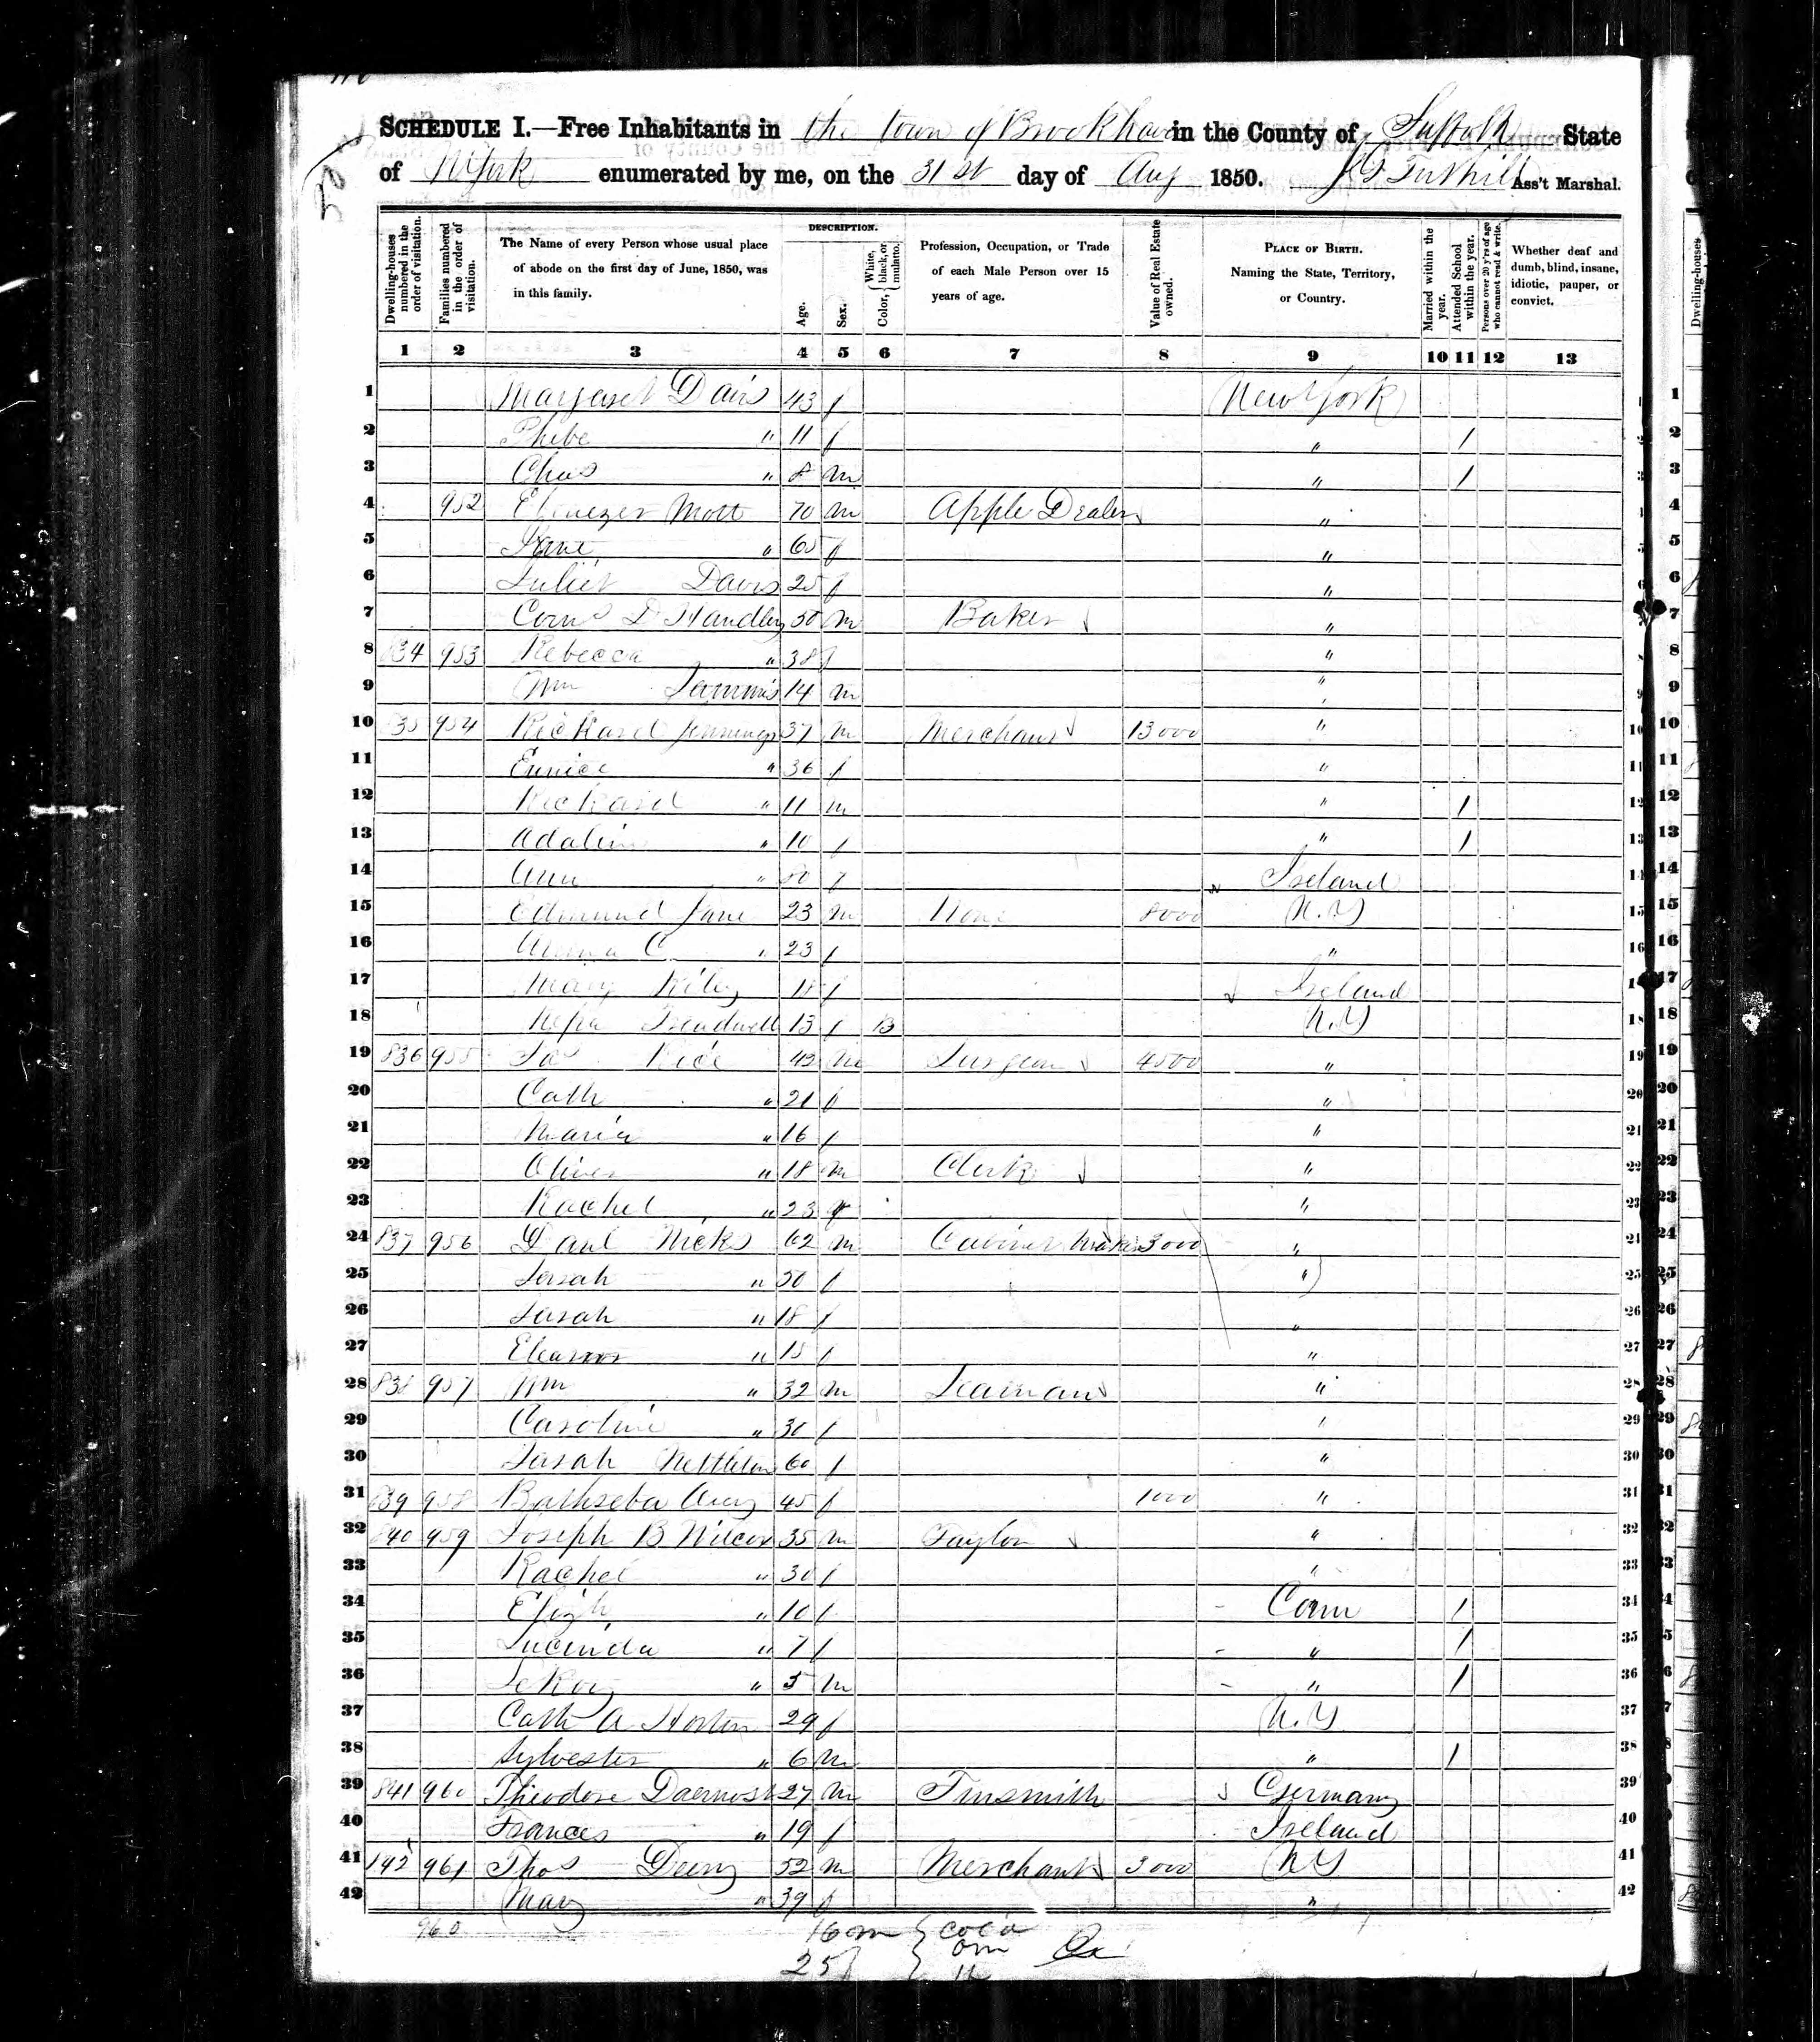 SCHEDULE I.—Free Inhabitants in the town of Brookhaven in the County of Suffolk State
of N York enumerated by me, on the 31st day of Aug 1850. Tuthill Ass't Marshal.
Dwelling-houses numbered in the order of visitation. Families numbered in the order of visitation. The Name of every Person whose usual place of abode on the first day of June, 1850, was in this family. DESCRIPTION. Age. Sex. Color, White, black, or mulatto. Profession, Occupation, or Trade of each Male Person over 15 years of age. Value of Real Estate owned. PLACE OF BIRTH. Naming the State, Territory, or Country. Married within the year. Attended School within the year. Persons over 20 y'rs of age who cannot read & write. Whether deaf and dumb, blind, insane, idiotic, pauper, or convict.
1 2 3 4 5 6 7 8 9 10 11 12 13
1 Margaret Davis 43 f New York 1
2 Phebe " 11 f " 1 2
3 Chas " 8 m " 1 3
4 952 Ebenezer Mott 70 m Apple Dealer " 4
5 Jane " 65 f " 5
6 Juliet Davis 25 f " 6
7 Corns D Handley 50 m Baker " 7
8 834 953 Rebecca " 38 f " 8
9 Wm Sammis 14 m " 9
10 835 954 Richard Jennings 37 m Merchant 13000 " 10
11 Eunice " 36 f " 11
12 Richard " 11 m " 1 12
13 Adaline " 10 f " 1 13
14 Ann " 80 f Ireland 14
15 Edmund Jane 23 m None 8000 N.Y 15
16 C. " 23 f " 16
17 Mary Riley 18 f Ireland 17
18 Treadwell 13 f B N.Y 18
19 836 955 Jas Rice 42 m Surgeon 4500 " 19
20 Cath " 21 f " 20
21 Maria " 16 f " 21
22 Oliver " 18 m Clerk " 22
23 Rachel " 23 f " 23
24 837 956 Danl Hicks 62 m Cabinet Maker 3000 " 24
25 Sarah " 50 f " 25
26 Sarah " 18 f " 26
27 Eleanor " 15 f " 27
28 838 957 Wm " 32 m Seaman " 28
29 Caroline " 30 f " 29
30 Sarah Nettleton 60 f " 30
31 839 958 Bathseba 45 f 1000 " 31
32 840 959 Joseph B Wilcox 35 m Taylor " 32
33 Rachel " 30 f " 33
34 " 10 f Conn 1 34
35 Lucinda " 7 f " 1 35
36 LeRoy " 5 m " 1 36
37 Cath A Horton 29 f N.Y 37
38 Sylvester " 6 m " 1 38
39 841 960 Theodore 27 m Tinsmith Germany 39
40 Frances " 19 f Ireland 40
41 142 961 Thos Deery 52 m Merchant 3000 N Y 41
42 Mary " 39 f " 42
960 16 m
25 f